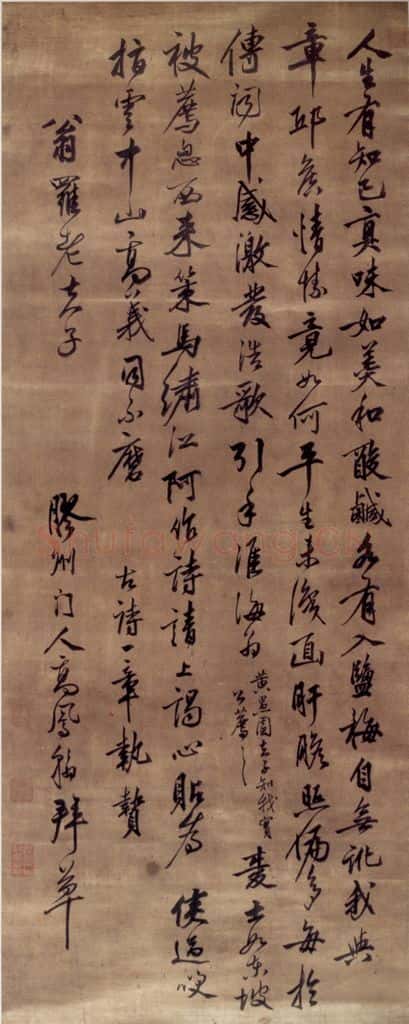 人生有知己真味如羹和酸鹹各有入鹽梅自無訛我與
章邱矦情愫竟如何平生未復面肝膽照偏多每於
傳聞中感激發浩歌引手淮海 愛士如東坡
黃墨園太守知我實
公薦之
被薦忽西來策馬繡江阿作詩請上謁心貼
指雲中山高義同不磨 古詩一章執贄
翁羅老夫子 膠州門人高鳳翰拜草